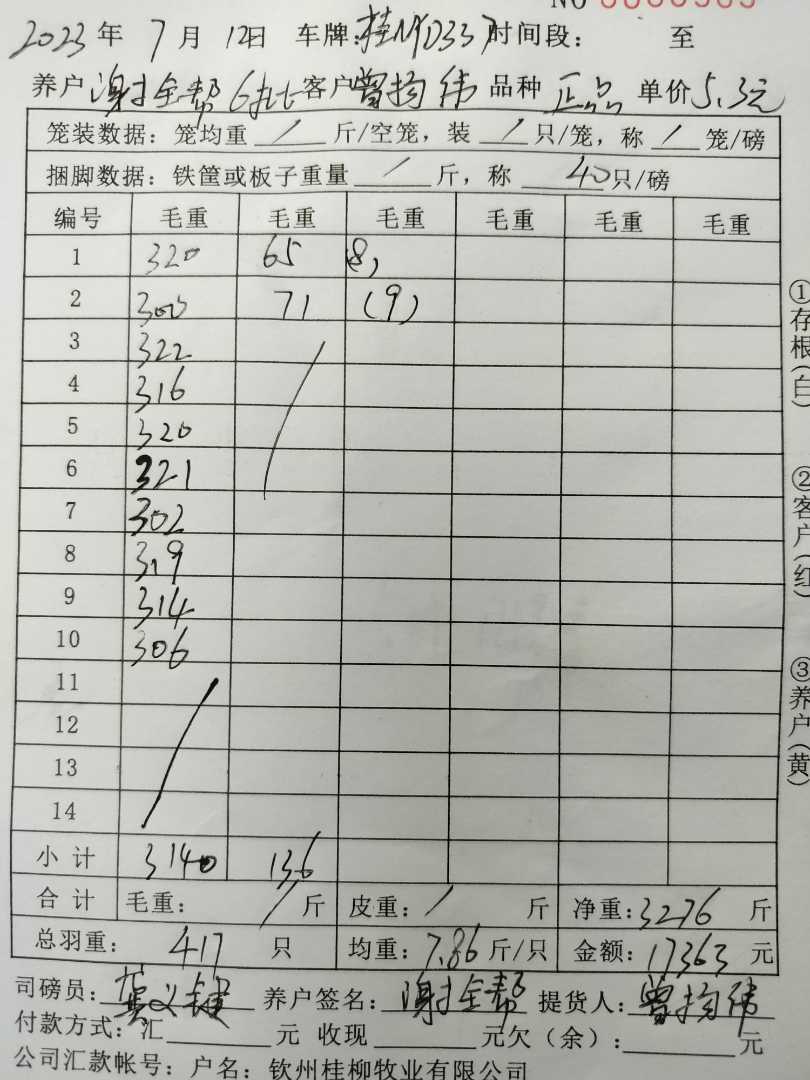 NO 0000505
2023 年 7 月 12日 车牌:桂M1D337 时间段: 至
养户 谢全帮 6批 客户 曾扬纬 品种 正品 单价 5.3元
笼装数据: 笼均重 / 斤/空笼, 装 / 只/笼, 称 / 笼/磅
捆脚数据: 铁筐或板子重量 / 斤, 称 40只/磅
编号 毛重 毛重 毛重 毛重 毛重 毛重
1 320 65 (8)
2 300 71 (9)
3 322
4 316
5 320
6 321
7 302
8 319
9 314
10 306
11
12
13
14
小计 3140 136
合计 毛重: / 斤 皮重: / 斤 净重:3276 斤
总羽重: 417 只 均重:7.86 斤/只 金额:17363 元
司磅员: 养户签名:谢全帮 提货人:曾扬纬
付款方式:汇 元 收现 元欠(余): 元
公司汇款帐号: 户名: 钦州桂柳牧业有限公司
①存根(白)
②客户(红)
③养户(黄)